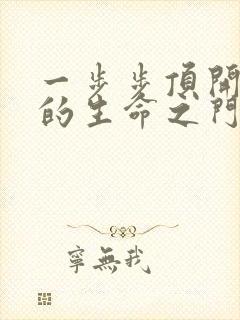 一步步頂開
的生命之門
寧無我